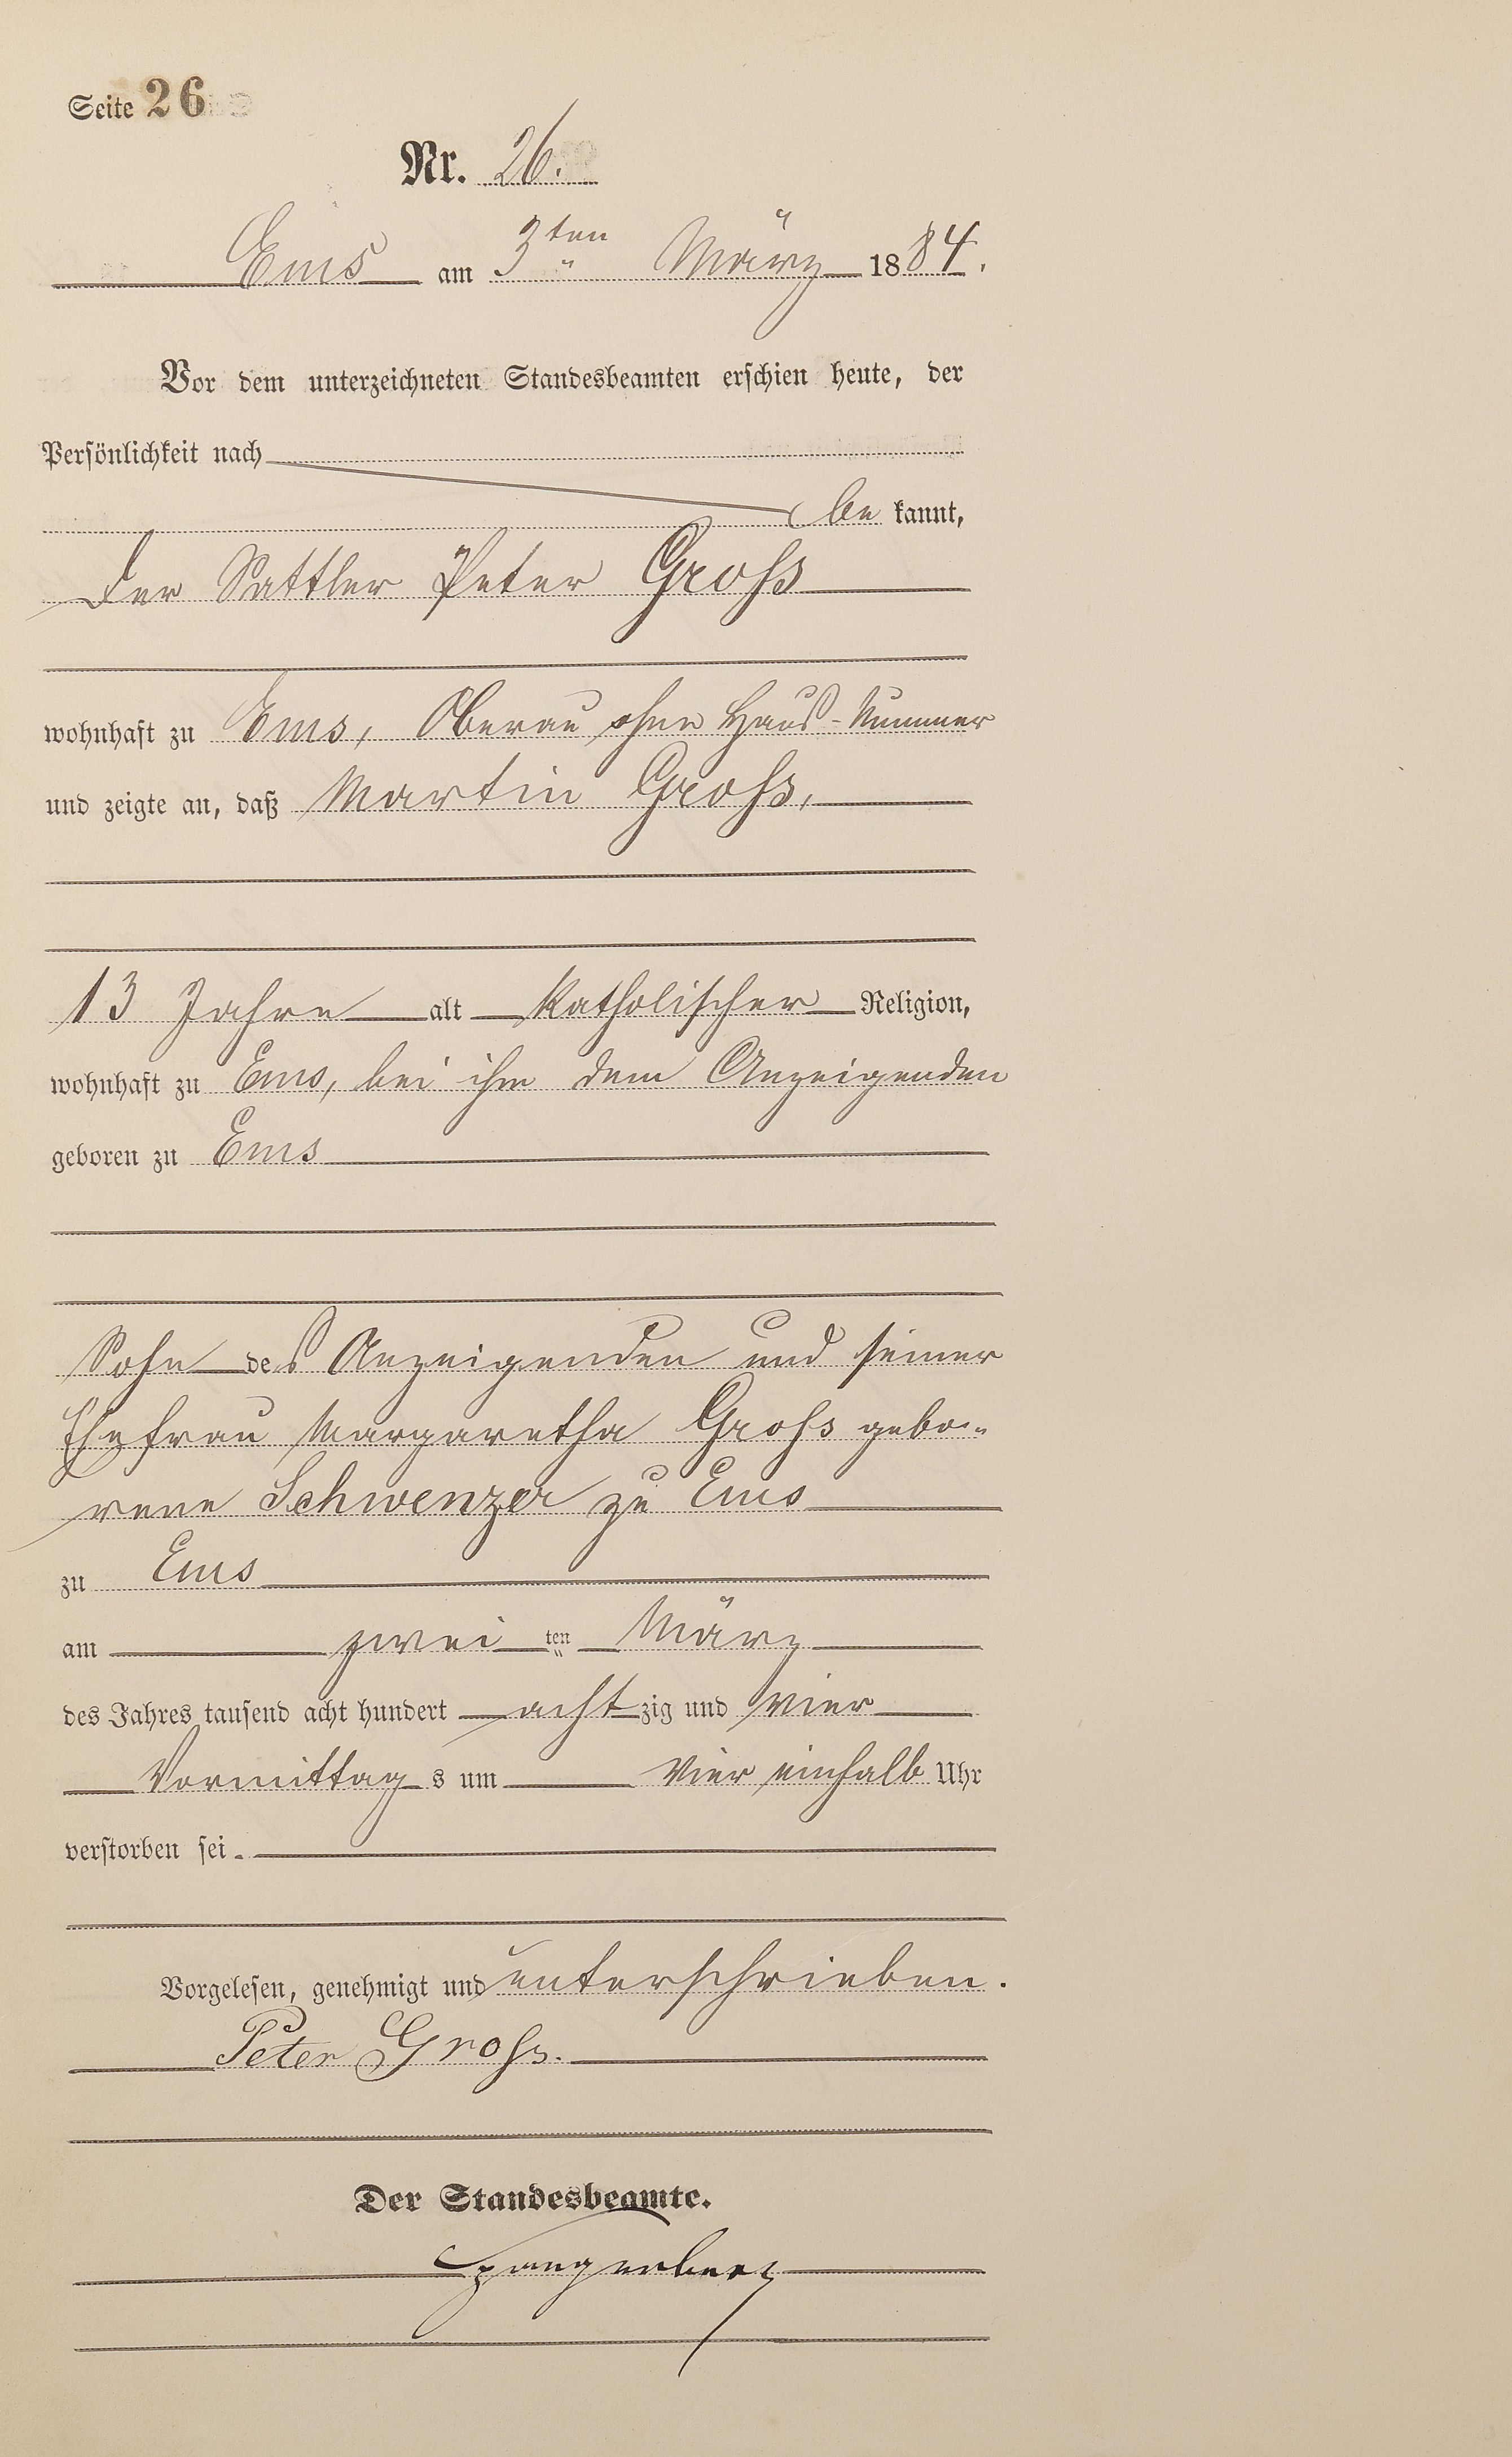 Seite 26
Nr. 26.
Ems am 3ten März 1884.
Vor dem unterzeichneten Standesbeamten erschien heute, der
Persönlichkeit nach
be kannt,
der Sattler Peter Groß
wohnhaft zu Ems, Oberau ohne Haus-Nummer
und zeigte an, daß Martin Groß,
13 Jahre alt katholischer Religion,
wohnhaft zu Ems, bei ihm dem Anzeigenden
geboren zu Ems
Sohn des Anzeigenden und seiner
Ehefrau Margaretha Groß gebo-
rene Schwenzer zu Ems
zu Ems
am zwei ten März
des Jahres tausend acht hundert acht zig und vier
Vormittag s um vier einhalb Uhr
verstorben sei.
Vorgelesen, genehmigt und unterschrieben.
Peter Groß.
Der Standesbeamte.
Spangenberg